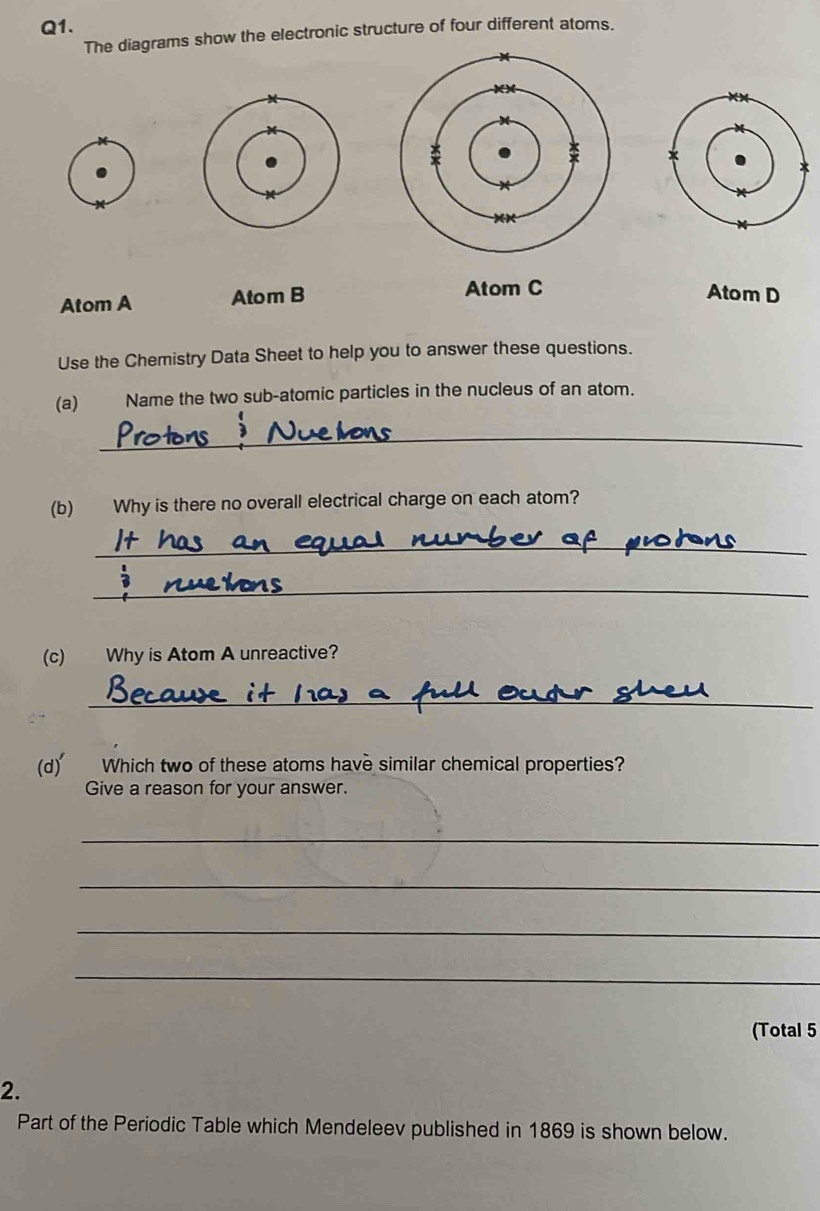 Q1.
The diagrams show the electronic structure of four different atoms.
Atom A Atom B Atom C Atom D
Use the Chemistry Data Sheet to help you to answer these questions.
(a) Name the two sub-atomic particles in the nucleus of an atom.
Protons & Nuetrons
(b) Why is there no overall electrical charge on each atom?
It has an equal number of protons
& nuetrons
(c) Why is Atom A unreactive?
Because it has a full outer shell
(d) Which two of these atoms have similar chemical properties?
Give a reason for your answer.
(Total 5
2.
Part of the Periodic Table which Mendeleev published in 1869 is shown below.